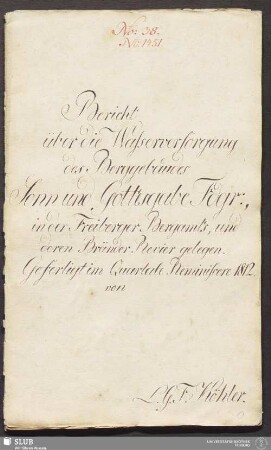 No: 38.
No: 1951
Bericht
über die Wasserversorgung
des Berggebäudes
Sonn und Gottesgabe Fdgr:,
in der Freiberger Bergamts, und
deren Bränder Revier gelegen.
Gefertigt im Quartale Reminiscere 1812
von
L. G. F. Köhler.
SLUB
Wir führen Wissen.